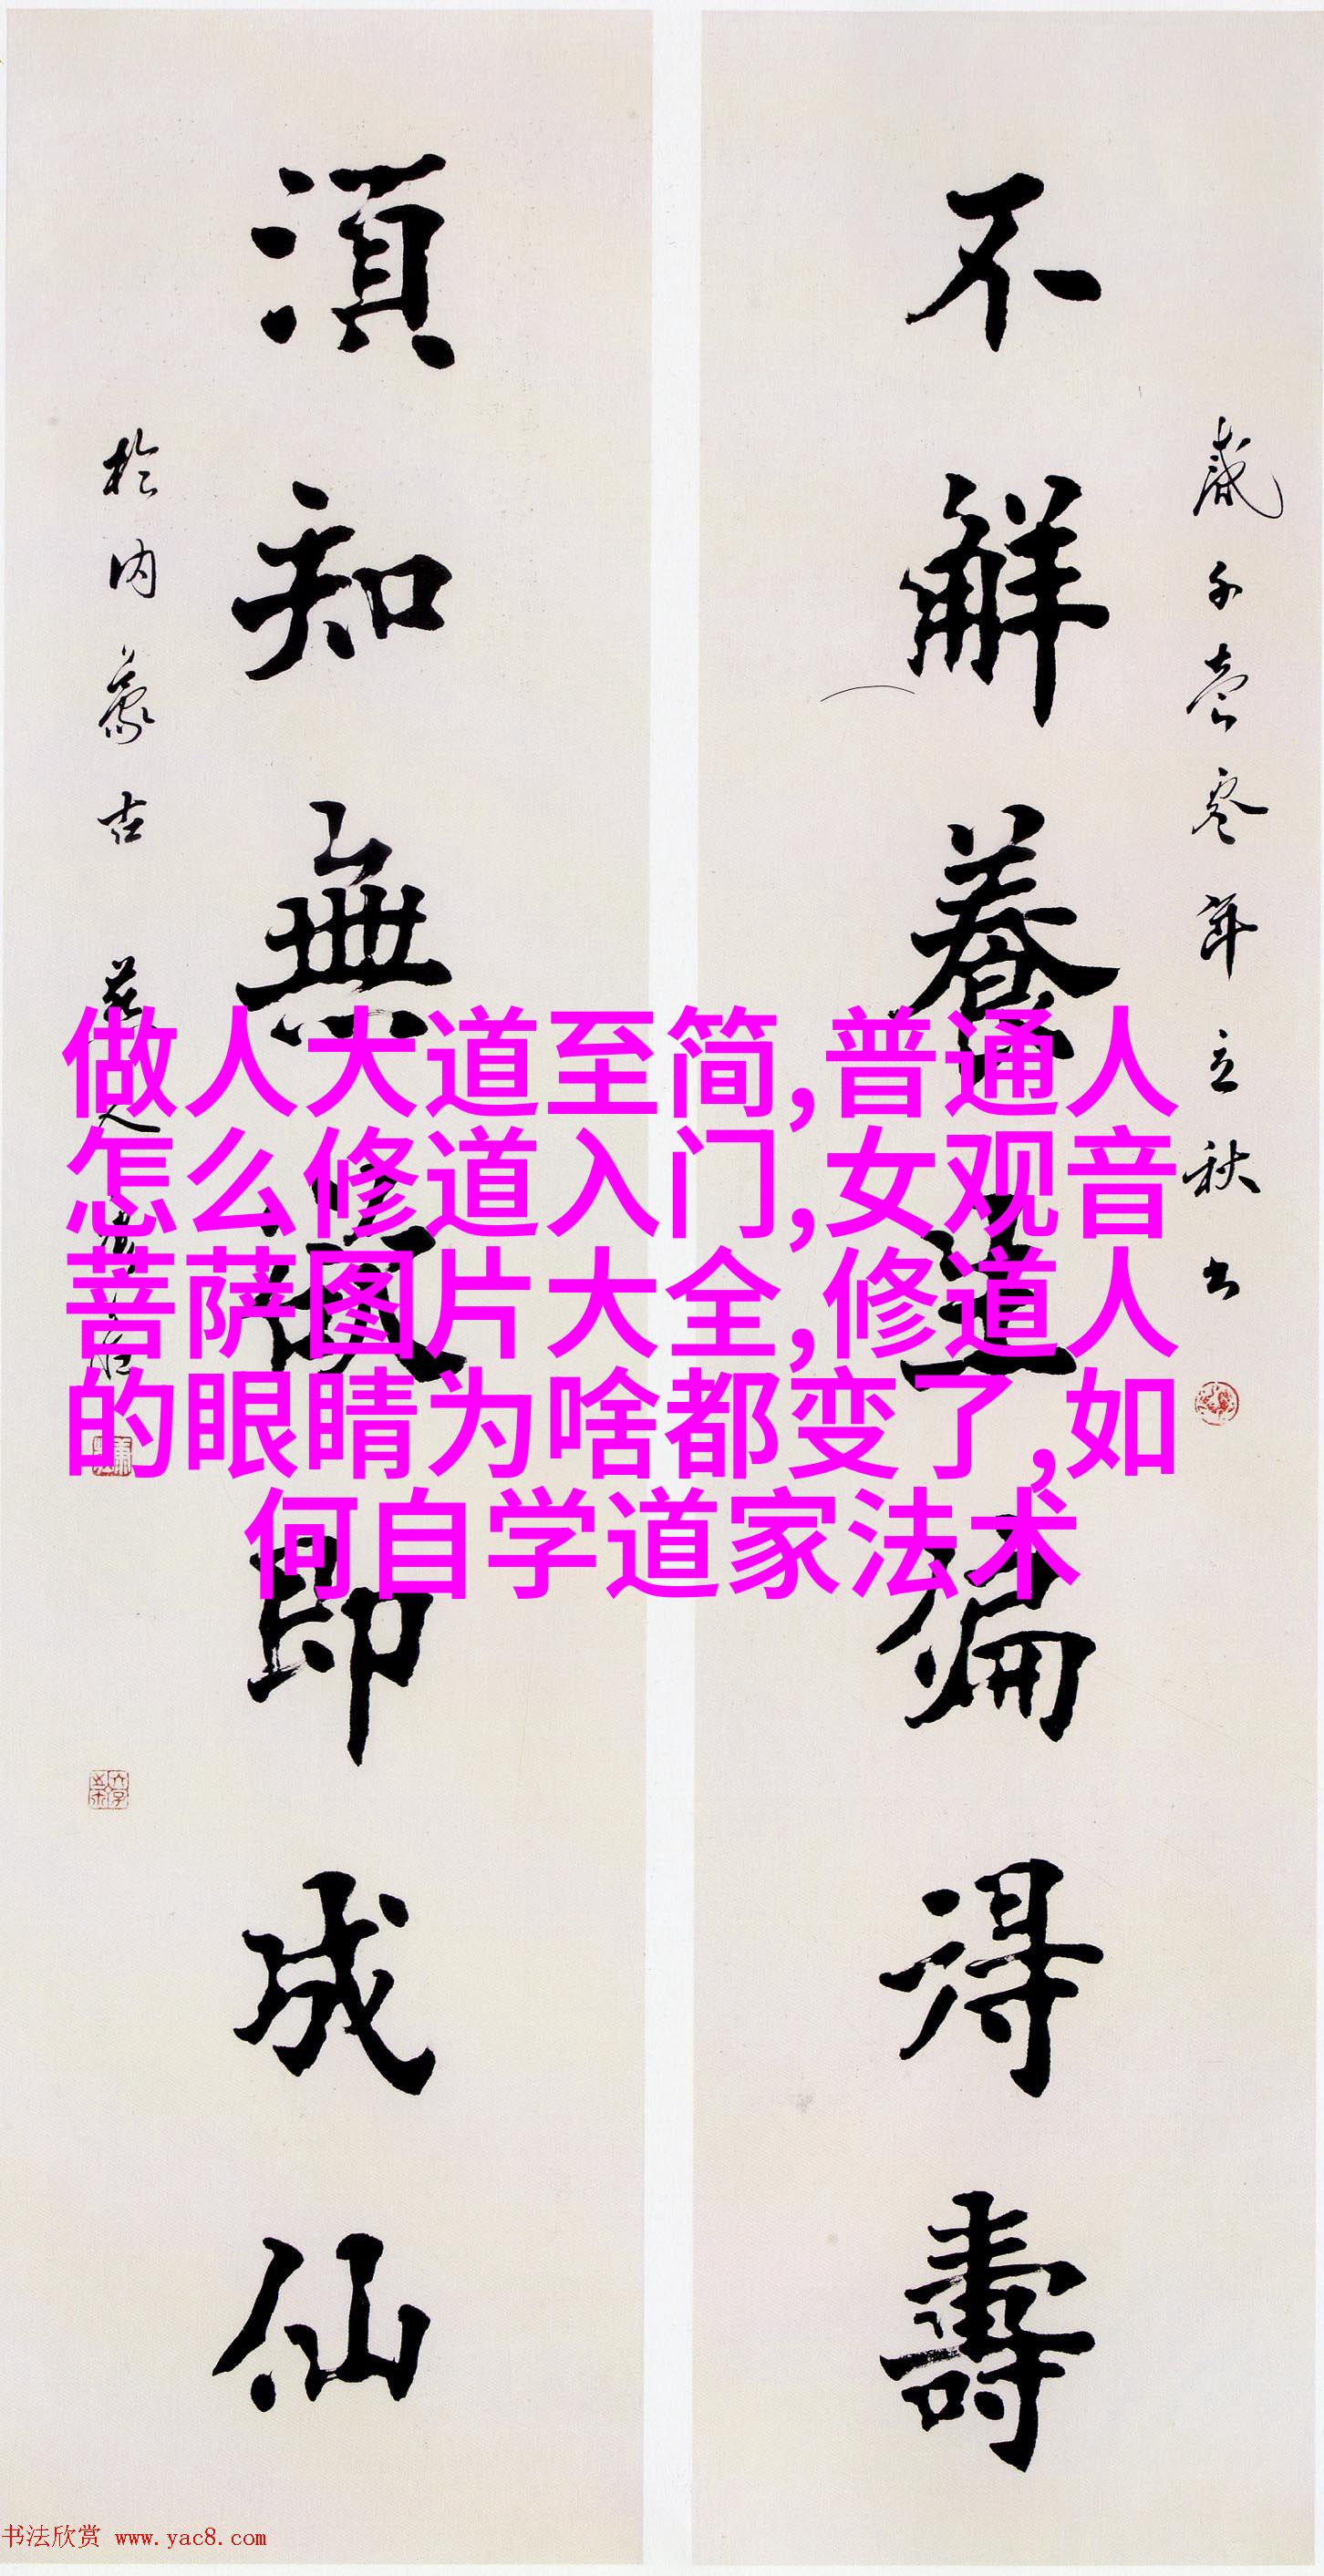 歲于壹零年立秋书
不解養生偏得壽
須知無即成仙
於内蒙古
做人大道至简,普通人
怎么修道入门,女观音
菩萨图片大全,修道人
的眼睛为啥都变了,如
何自学道家法术
书法欣赏 www.yac8.com